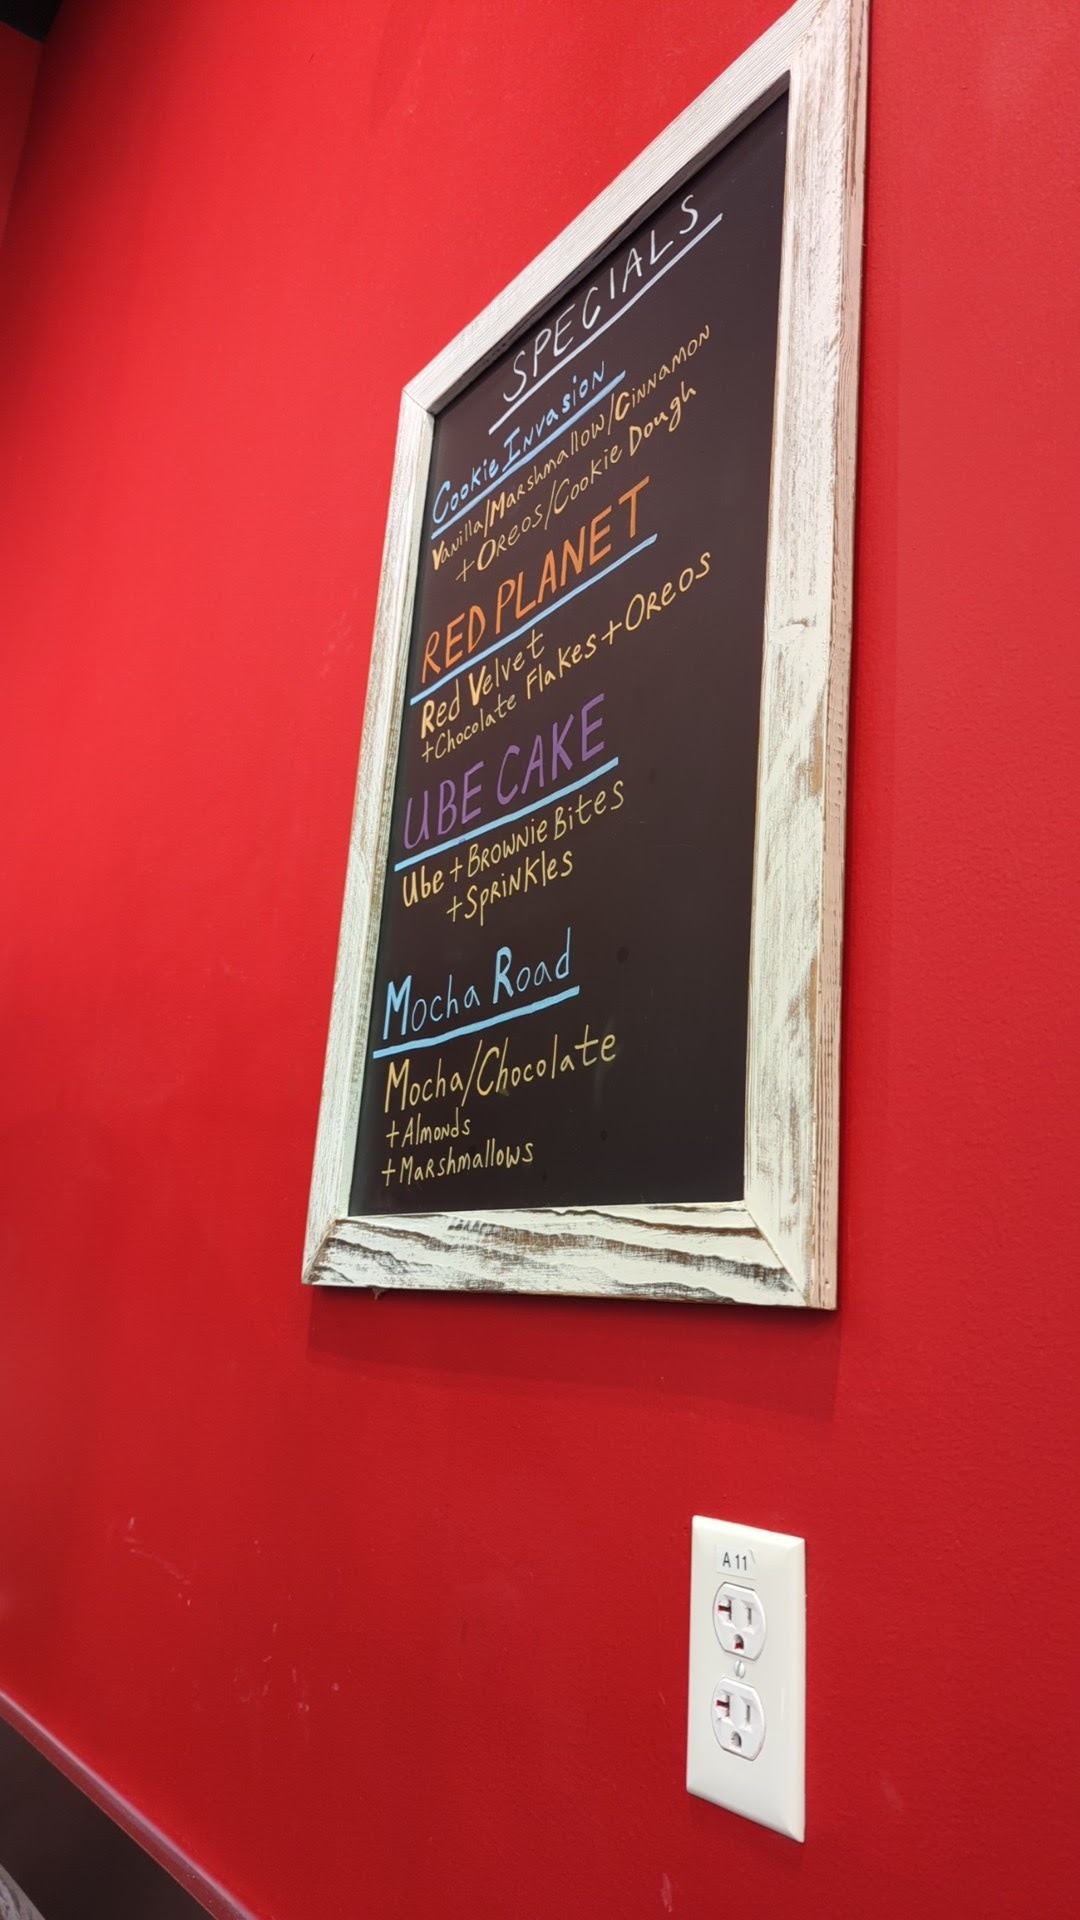 SPECIALS
Cookie Invasion
Vanilla/Marshmallow/Cinnamon
+ Oreos/Cookie Dough
RED PLANET
Red Velvet
+Chocolate Flakes + Oreos
UBE CAKE
Ube + Brownie Bites
+Sprinkles
Mocha Road
Mocha/Chocolate
+Almonds
+Marshmallows
A 11